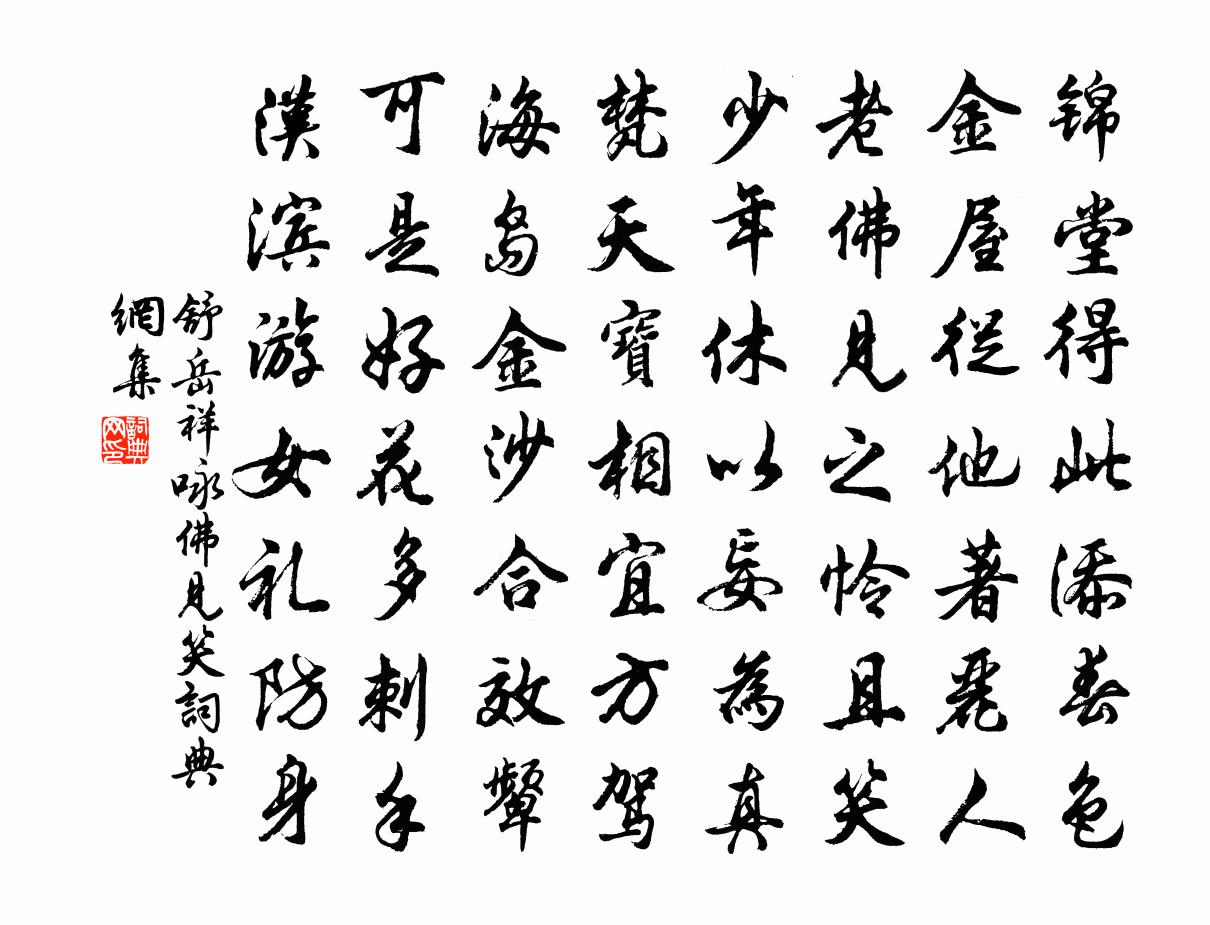 锦堂得此添春色
金屋從他著麗人
老佛見之怜且笑
少年休以妄為真
梵天寶相宜方駕
海島金沙合效顰
可是好花多刺手
漢濱游女礼防身
舒岳祥咏佛見笑詞典
網集
詞典
网印